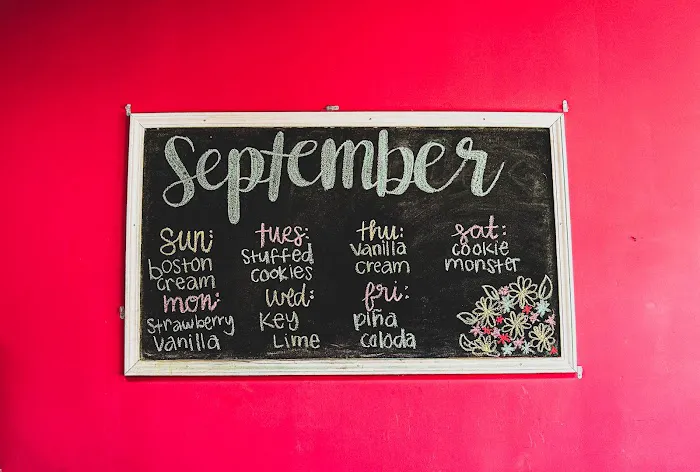 September
sun:
boston
cream
mon:
strawberry
vanilla
tues:
stuffed
cookies
wed:
key
lime
thu:
vanilla
cream
fri:
piña
colada
sat:
cookie
monster